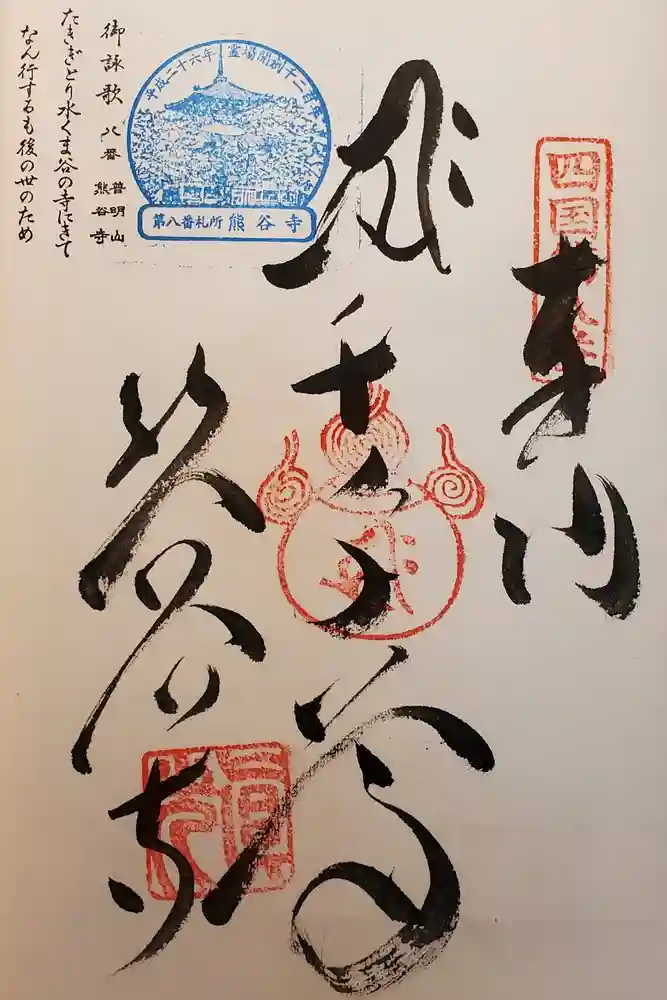 四国第八番
奉納
平成二十六年 霊場開創千二百年
第八番札所 熊谷寺
熊谷寺
御詠歌 八番 普明山 熊谷寺
たきぎとり水くま谷の寺にきて
なん行するも後の世のため